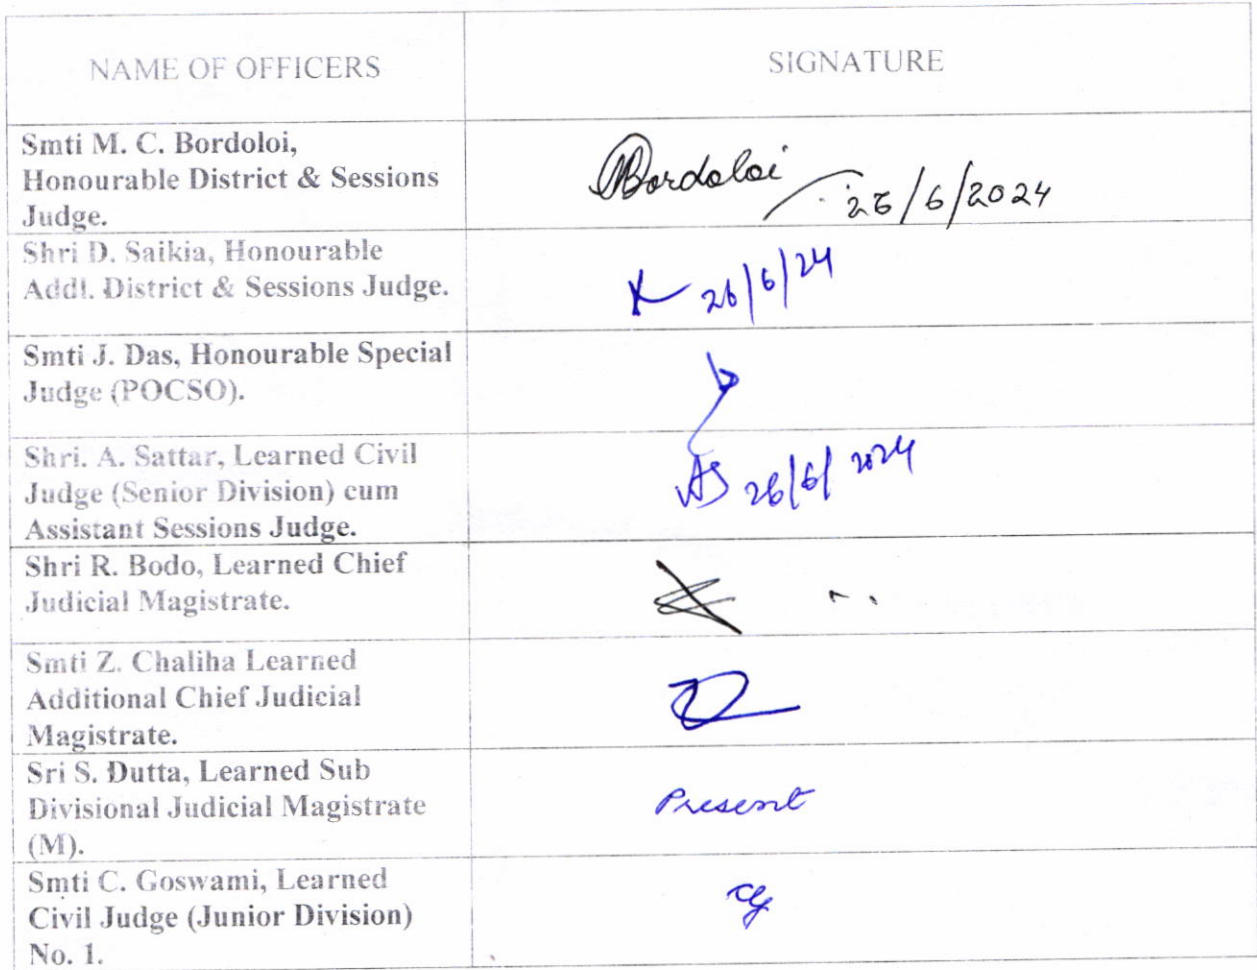 NAME OF OFFICERS
SIGNATURE
Smti M. C. Bordoloi,
Honourable District & Sessions
Judge.
Bordoloi
26/6/2024
Shri D. Saikia, Honourable
Addl. District & Sessions Judge.
26/6/24
Smti J. Das, Honourable Special
Judge (POCSO).
Shri. A. Sattar, Learned Civil
Judge (Senior Division) cum
Assistant Sessions Judge.
AS 26/6/2024
Shri R. Bodo, Learned Chief
Judicial Magistrate.
Smti Z. Chaliha Learned
Additional Chief Judicial
Magistrate.
Sri S. Dutta, Learned Sub
Divisional Judicial Magistrate
(M).
Present
Smti C. Goswami, Learned
Civil Judge (Junior Division)
No. 1.
CG